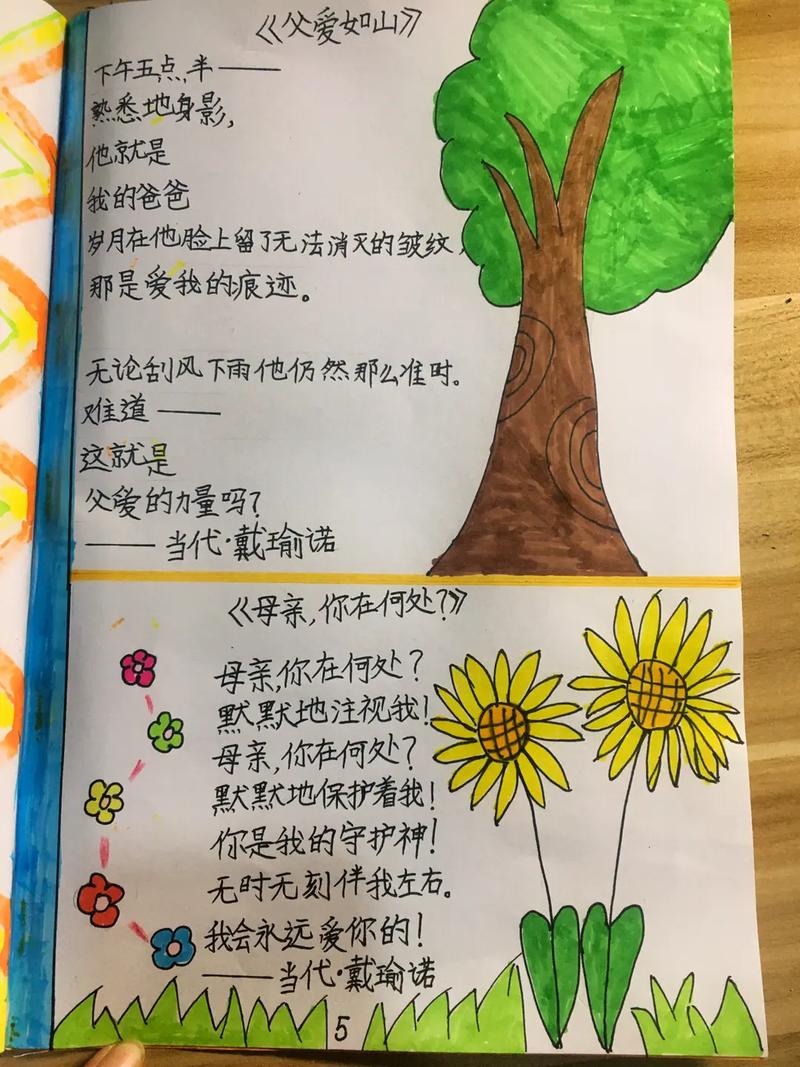 《父爱如山》
下午五点半——
熟悉地身影，
他就是
我的爸爸
岁月在他脸上留了无法消灭的皱纹，
那是爱我的痕迹。
无论刮风下雨他仍然那么准时。
难道——
这就是
父爱的力量吗？
——当代·戴瑜诺
《母亲，你在何处？》
母亲，你在何处？
默默地注视我！
母亲，你在何处？
默默地保护着我！
你是我的守护神！
无时无刻伴我左右。
我会永远爱你的！
——当代·戴瑜诺
5